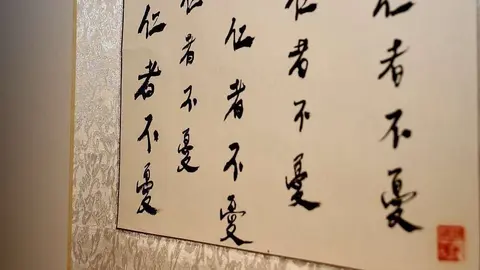 仁者不憂
仁者不憂
仁者不憂
仁者不憂
仁者不憂